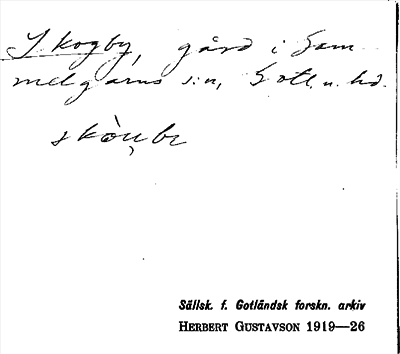 Skogby, gård i Gam
melgarns s:n, Gotl. n. hd.
skòu̦br
Sällsk. f. Gotländsk forskn. arkiv
HERBERT GUSTAVSON 1919—26